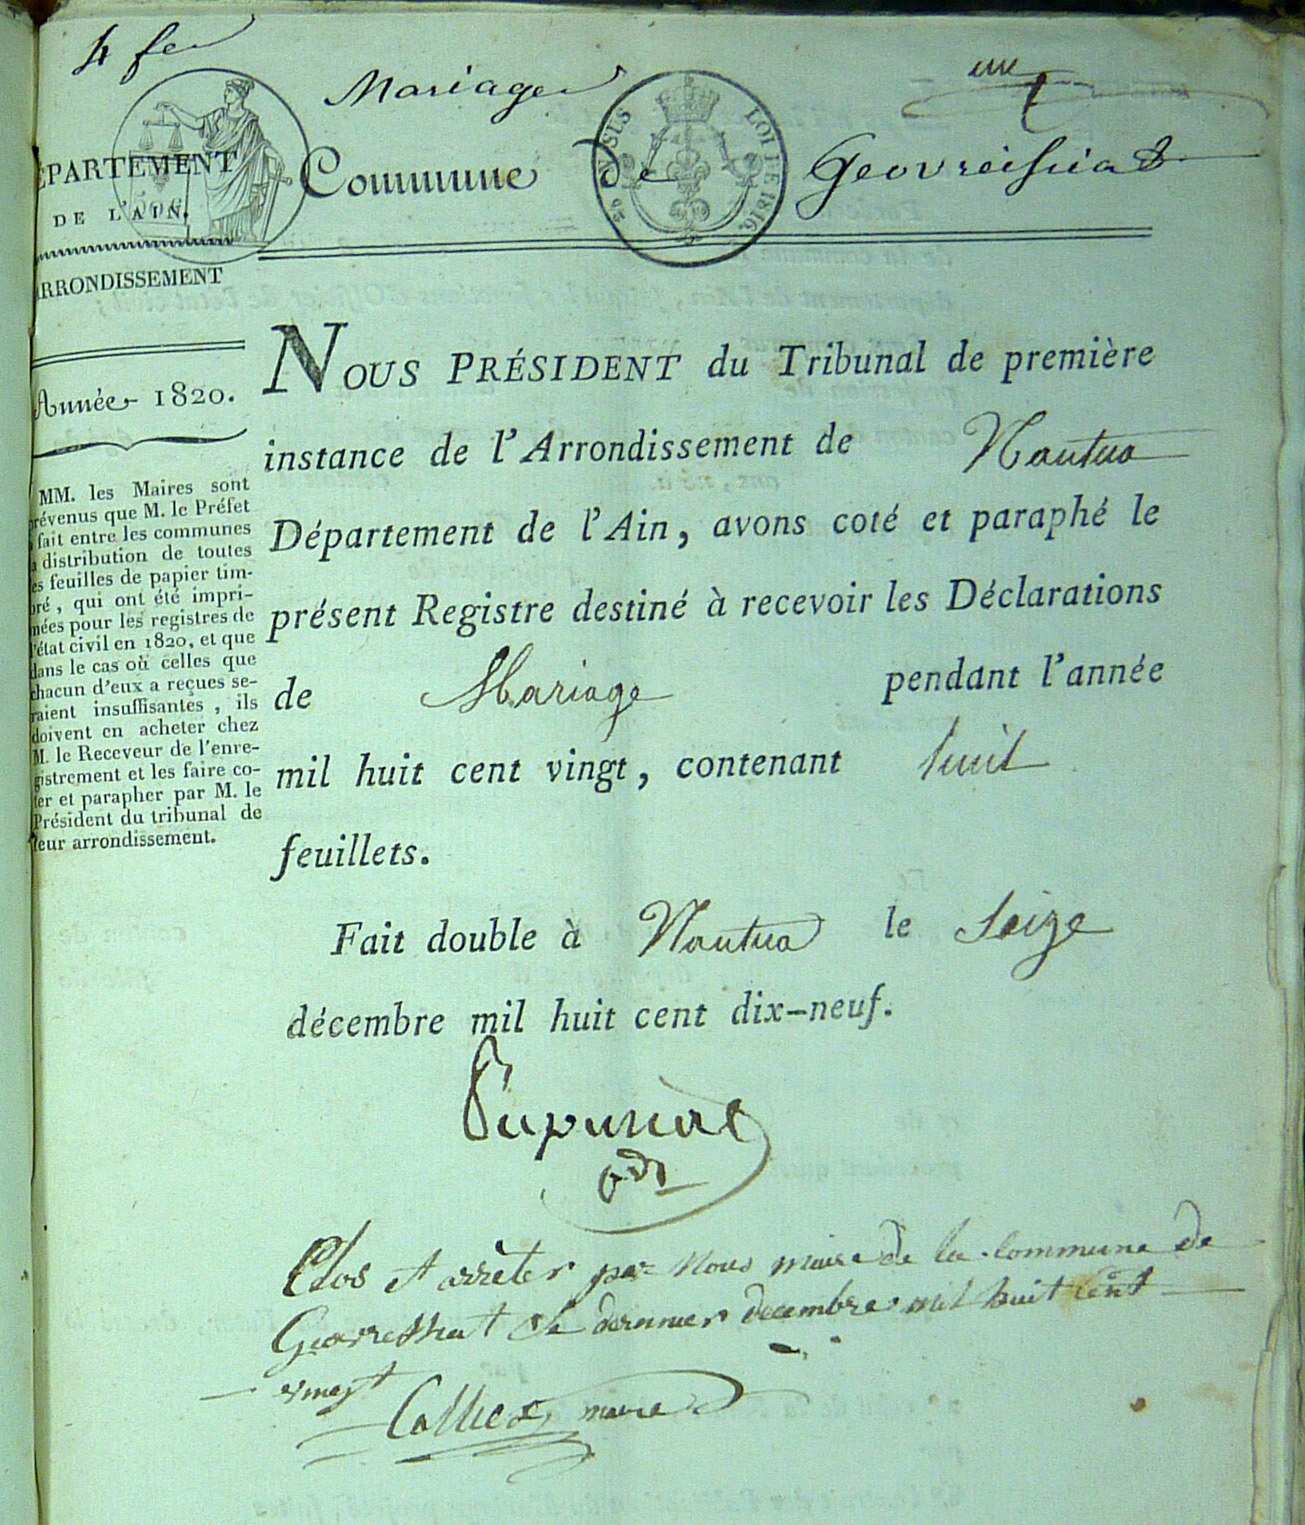 4 fer
Mariage
une
DÉPARTEMENT
DE L'AIN.
Commune de Geovreissiat
LOI DE 1816.
ARRONDISSEMENT
Année 1820.
MM. les Maires sont
prévenus que M. le Préfet
a fait entre les communes
la distribution de toutes
les feuilles de papier tim-
bré, qui ont été impri-
mées pour les registres de
l'état civil en 1820, et que
dans le cas où celles que
chacun d'eux a reçues se-
raient insuffisantes, ils
doivent en acheter chez
M. le Receveur de l'enre-
gistrement et les faire co-
ter et parapher par M. le
Président du tribunal de
leur arrondissement.
NOUS PRÉSIDENT du Tribunal de première
instance de l'Arrondissement de Nantua
Département de l'Ain, avons coté et paraphé le
présent Registre destiné à recevoir les Déclarations
de Mariage pendant l'année
mil huit cent vingt, contenant huit
feuillets.
Fait double à Nantua le Seize
décembre mil huit cent dix-neuf.
Clos et arrèter par Nous maire de la Commune de
le dernier decembre mil huit Cent
vingt
maire